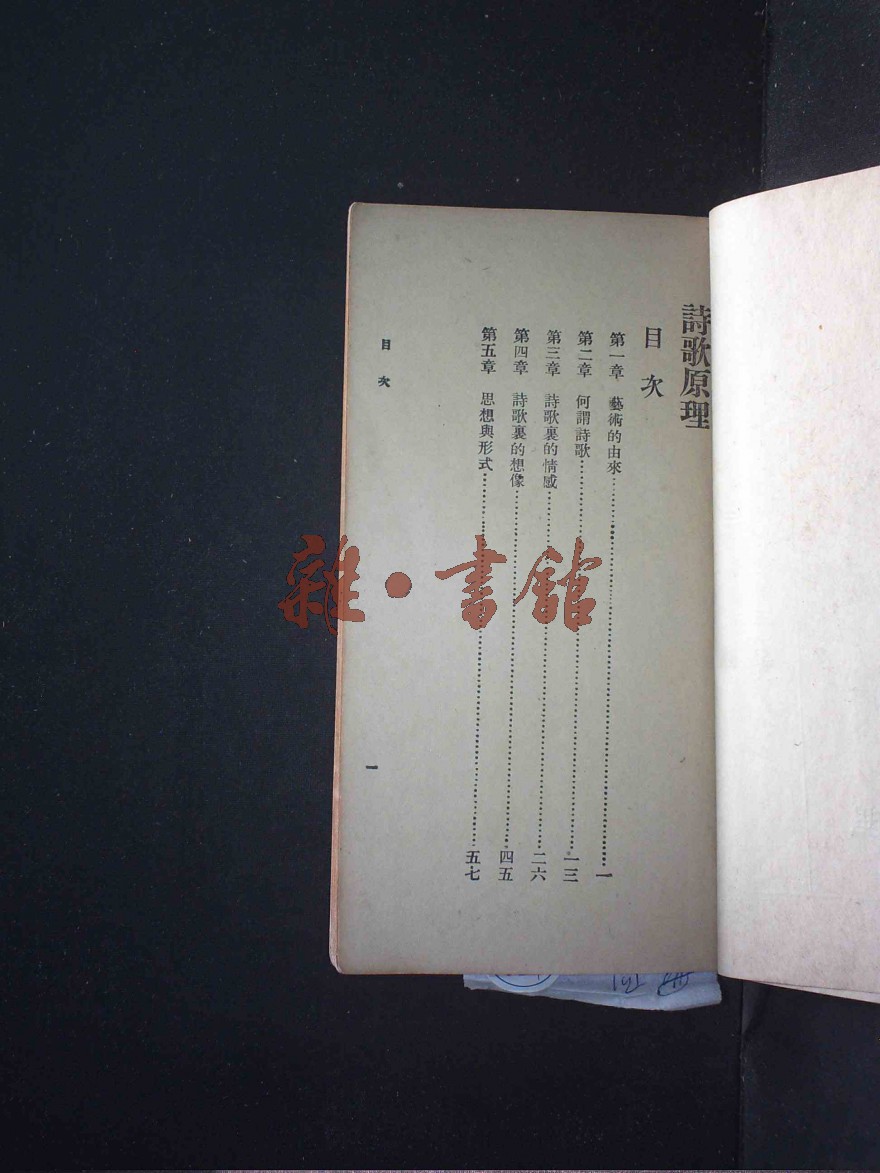 詩歌原理
目次
第一章 藝術的由來……一
第二章 何謂詩歌……一三
第三章 詩歌裏的情感……二六
第四章 詩歌裏的想像……四五
第五章 思想與形式……五七
目次
一
雜·書館